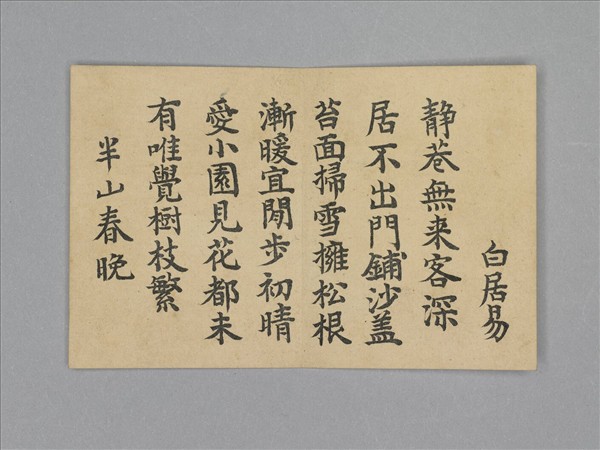 白居易
静巷無来客深
居不出門鋪沙盖
苔面掃雪擁松根
漸暖宜閒步初晴
愛小園見花都未
有唯覺樹枝繁
半山春晚